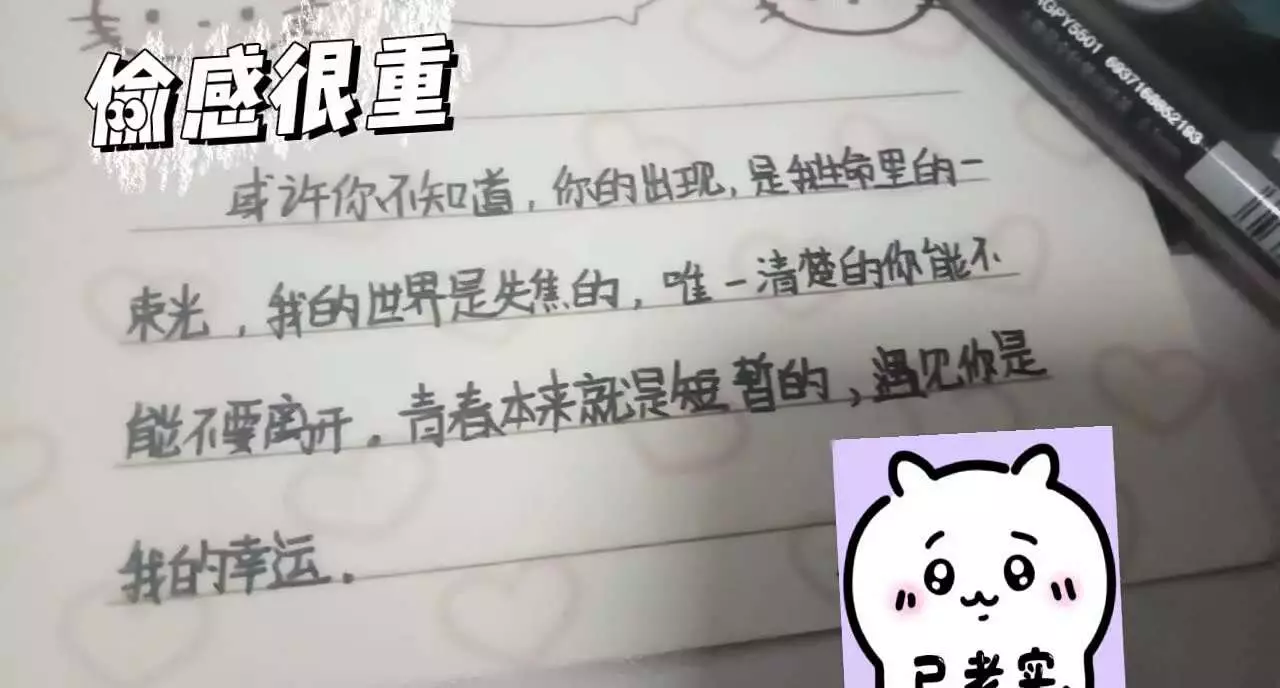 偷感很重
GPY5501 6937168652193
或许你不知道，你的出现，是我生命里的一
束光，我的世界是失焦的，唯一清楚的你能不
能不要离开。青春本来就是短暂的、遇见你是
我的幸运。
已老实